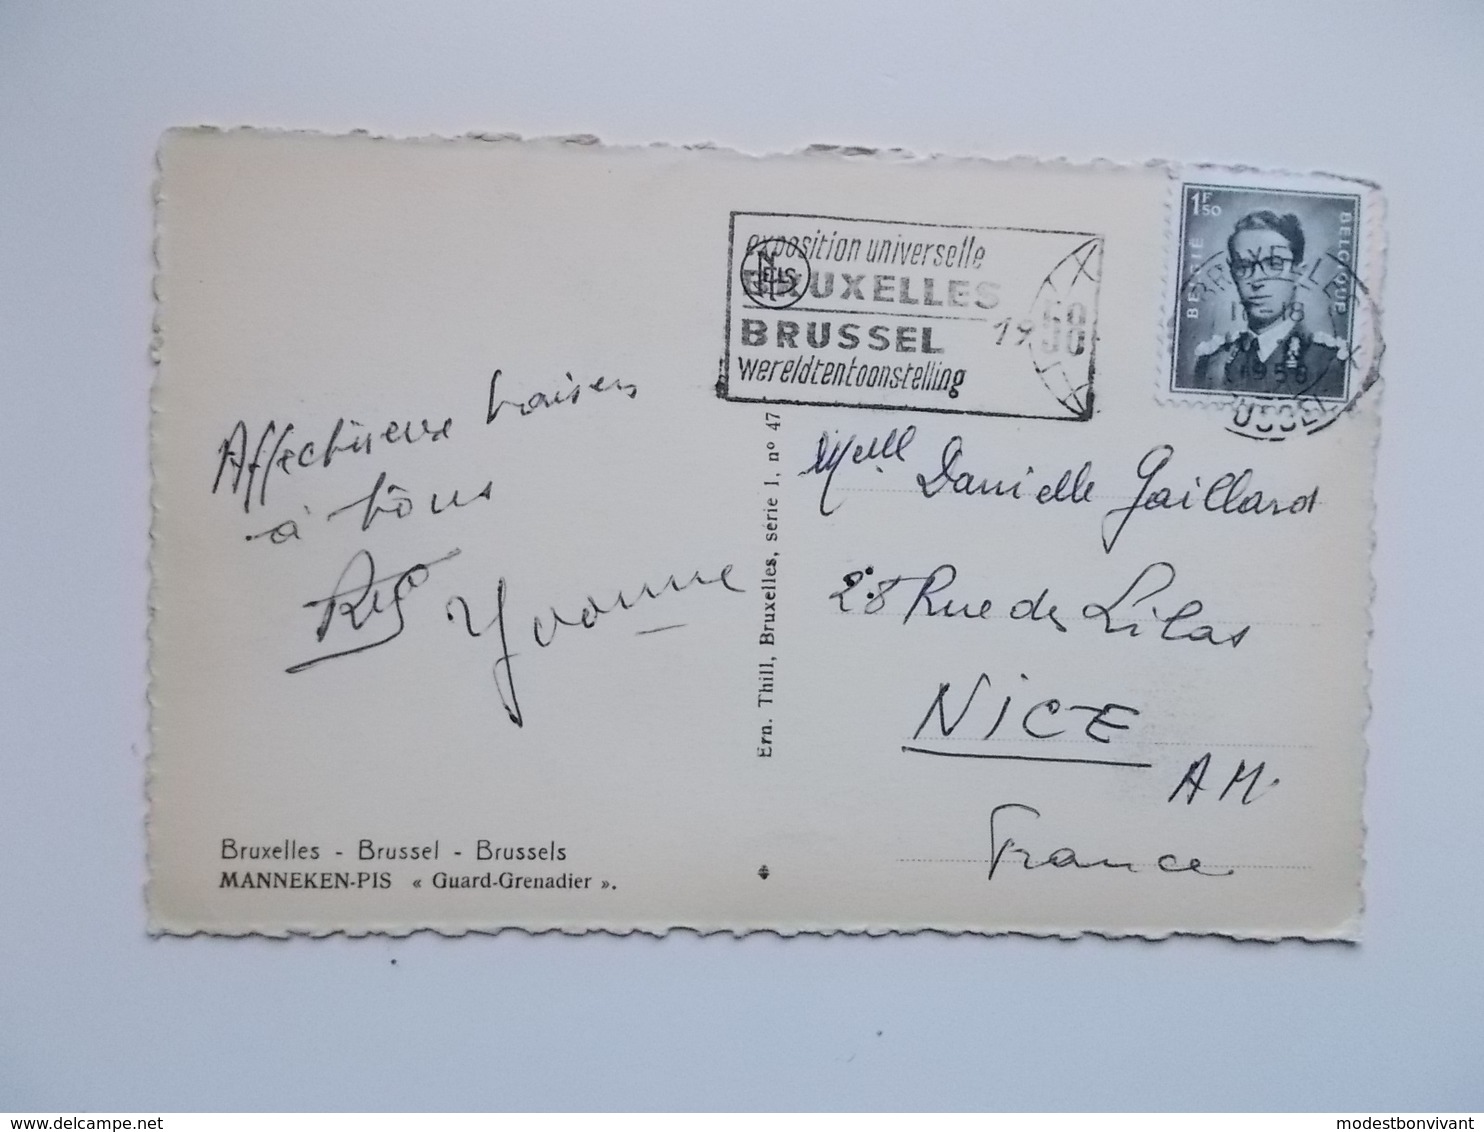 exposition universelle
BRUXELLES
BRUSSEL 1958
wereldtentoonstelling
NELS
1F50
BELGIE
BELGIQUE
BRUXELLES X
17-18
1958
BRUSSEL
Affectueux baisers
à tous
Yvonne
Melle Danielle Gaillard
28 Rue des Lilas
NICE
A M.
France
Ern. Thill, Bruxelles, série 1, nº 47
Bruxelles - Brussel - Brussels
MANNEKEN-PIS « Guard-Grenadier ».
delcampe.net
modestbonvivant